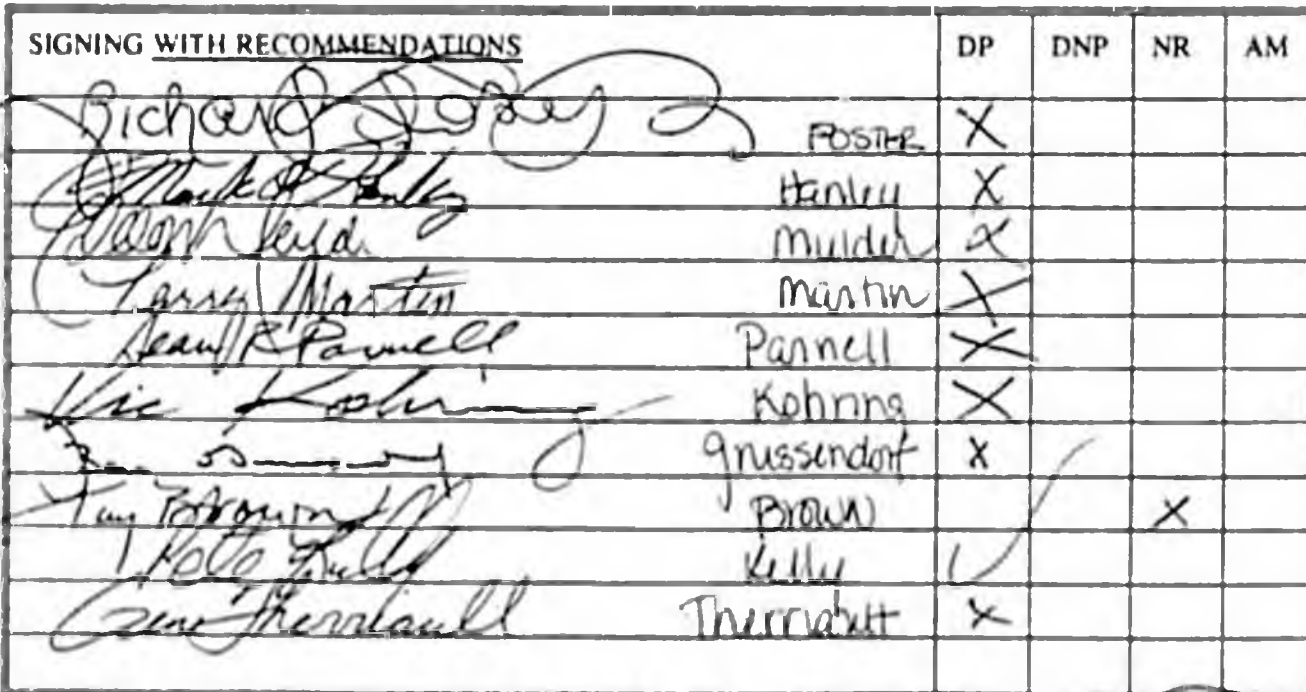 SIGNING WITH RECOMMENDATIONS DP DNP NR AM
Richard FOSTER X
Mark Hanley X
Mulder X
Larry Martin Martin X
Sean R Parnell Parnell X
Vic Kohring Kohring X
Grussendorf X
Kay Brown Brown X
Pete Kelly Kelly ✓
Gene Therriault Therriault X